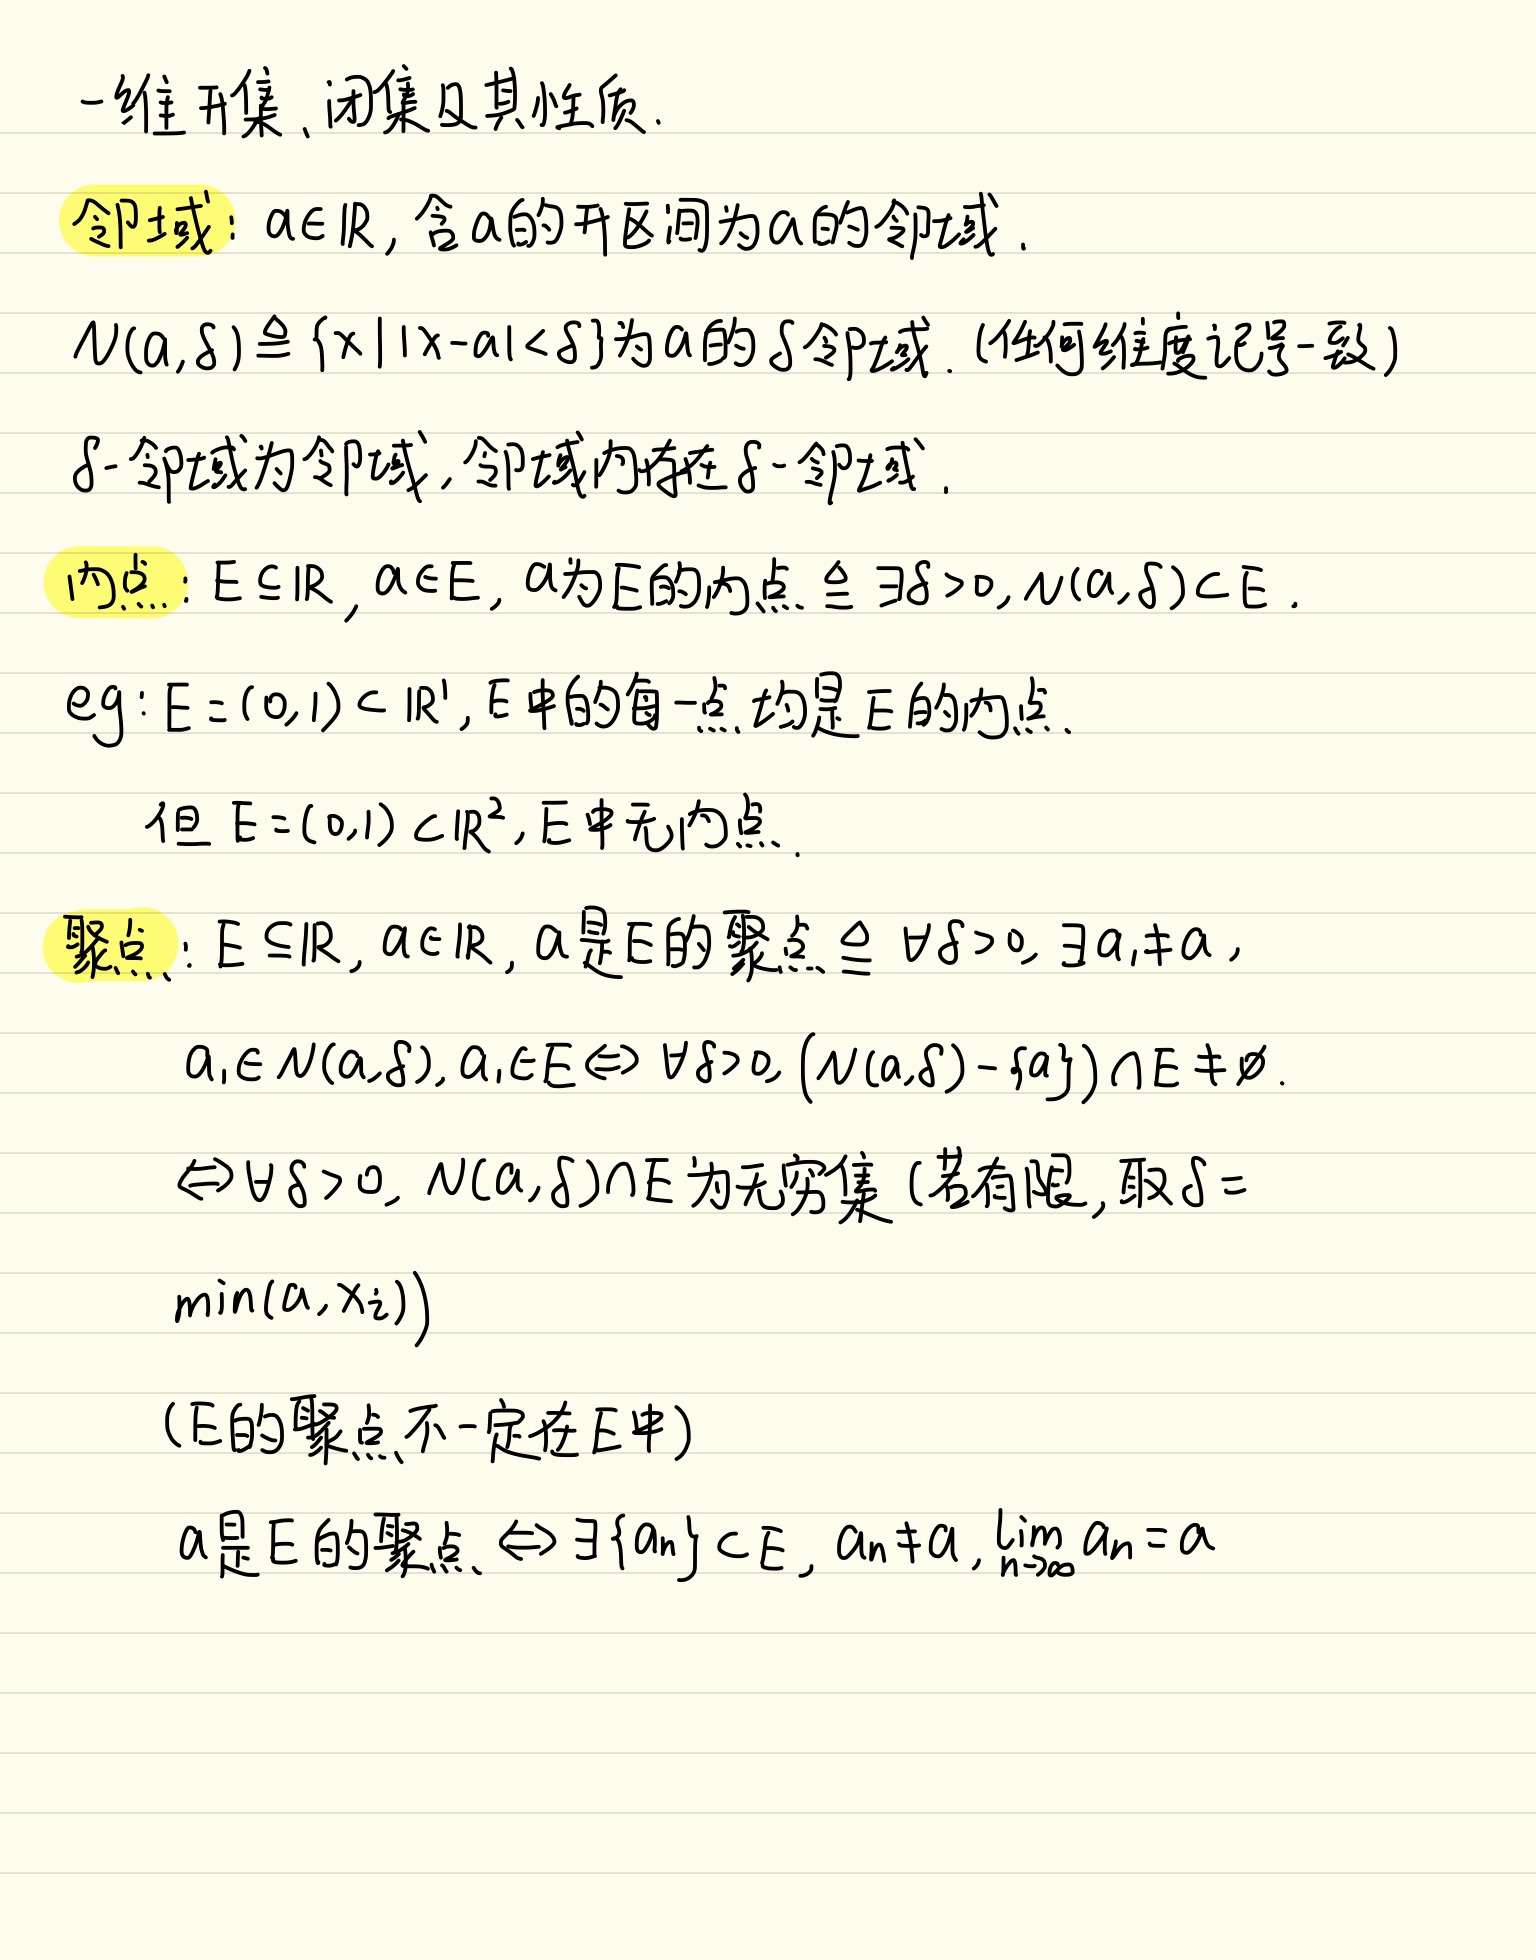 一维开集、闭集及其性质.
邻域: a∈ℝ, 含a的开区间为a的邻域.
N(a,δ)≜{x||x-a|<δ}为a的δ邻域. (任何维度记号一致)
δ-邻域为邻域, 邻域内存在δ-邻域.
内点: E⊆ℝ, a∈E, a为E的内点≜∃δ>0, N(a,δ)⊂E.
eg: E=(0,1)⊂ℝ¹, E中的每一点均是E的内点.
但 E=(0,1)⊂ℝ², E中无内点.
聚点: E⊆ℝ, a∈ℝ, a是E的聚点≜∀δ>0, ∃a₁≠a,
a₁∈N(a,δ), a₁∈E⇔∀δ>0, (N(a,δ)-{a})∩E≠∅.
⇔∀δ>0, N(a,δ)∩E为无穷集 (若有限, 取δ=
min(a,xᵢ))
(E的聚点不一定在E中)
a是E的聚点⇔∃{aₙ}⊂E, aₙ≠a, lim_{n→∞} aₙ=a